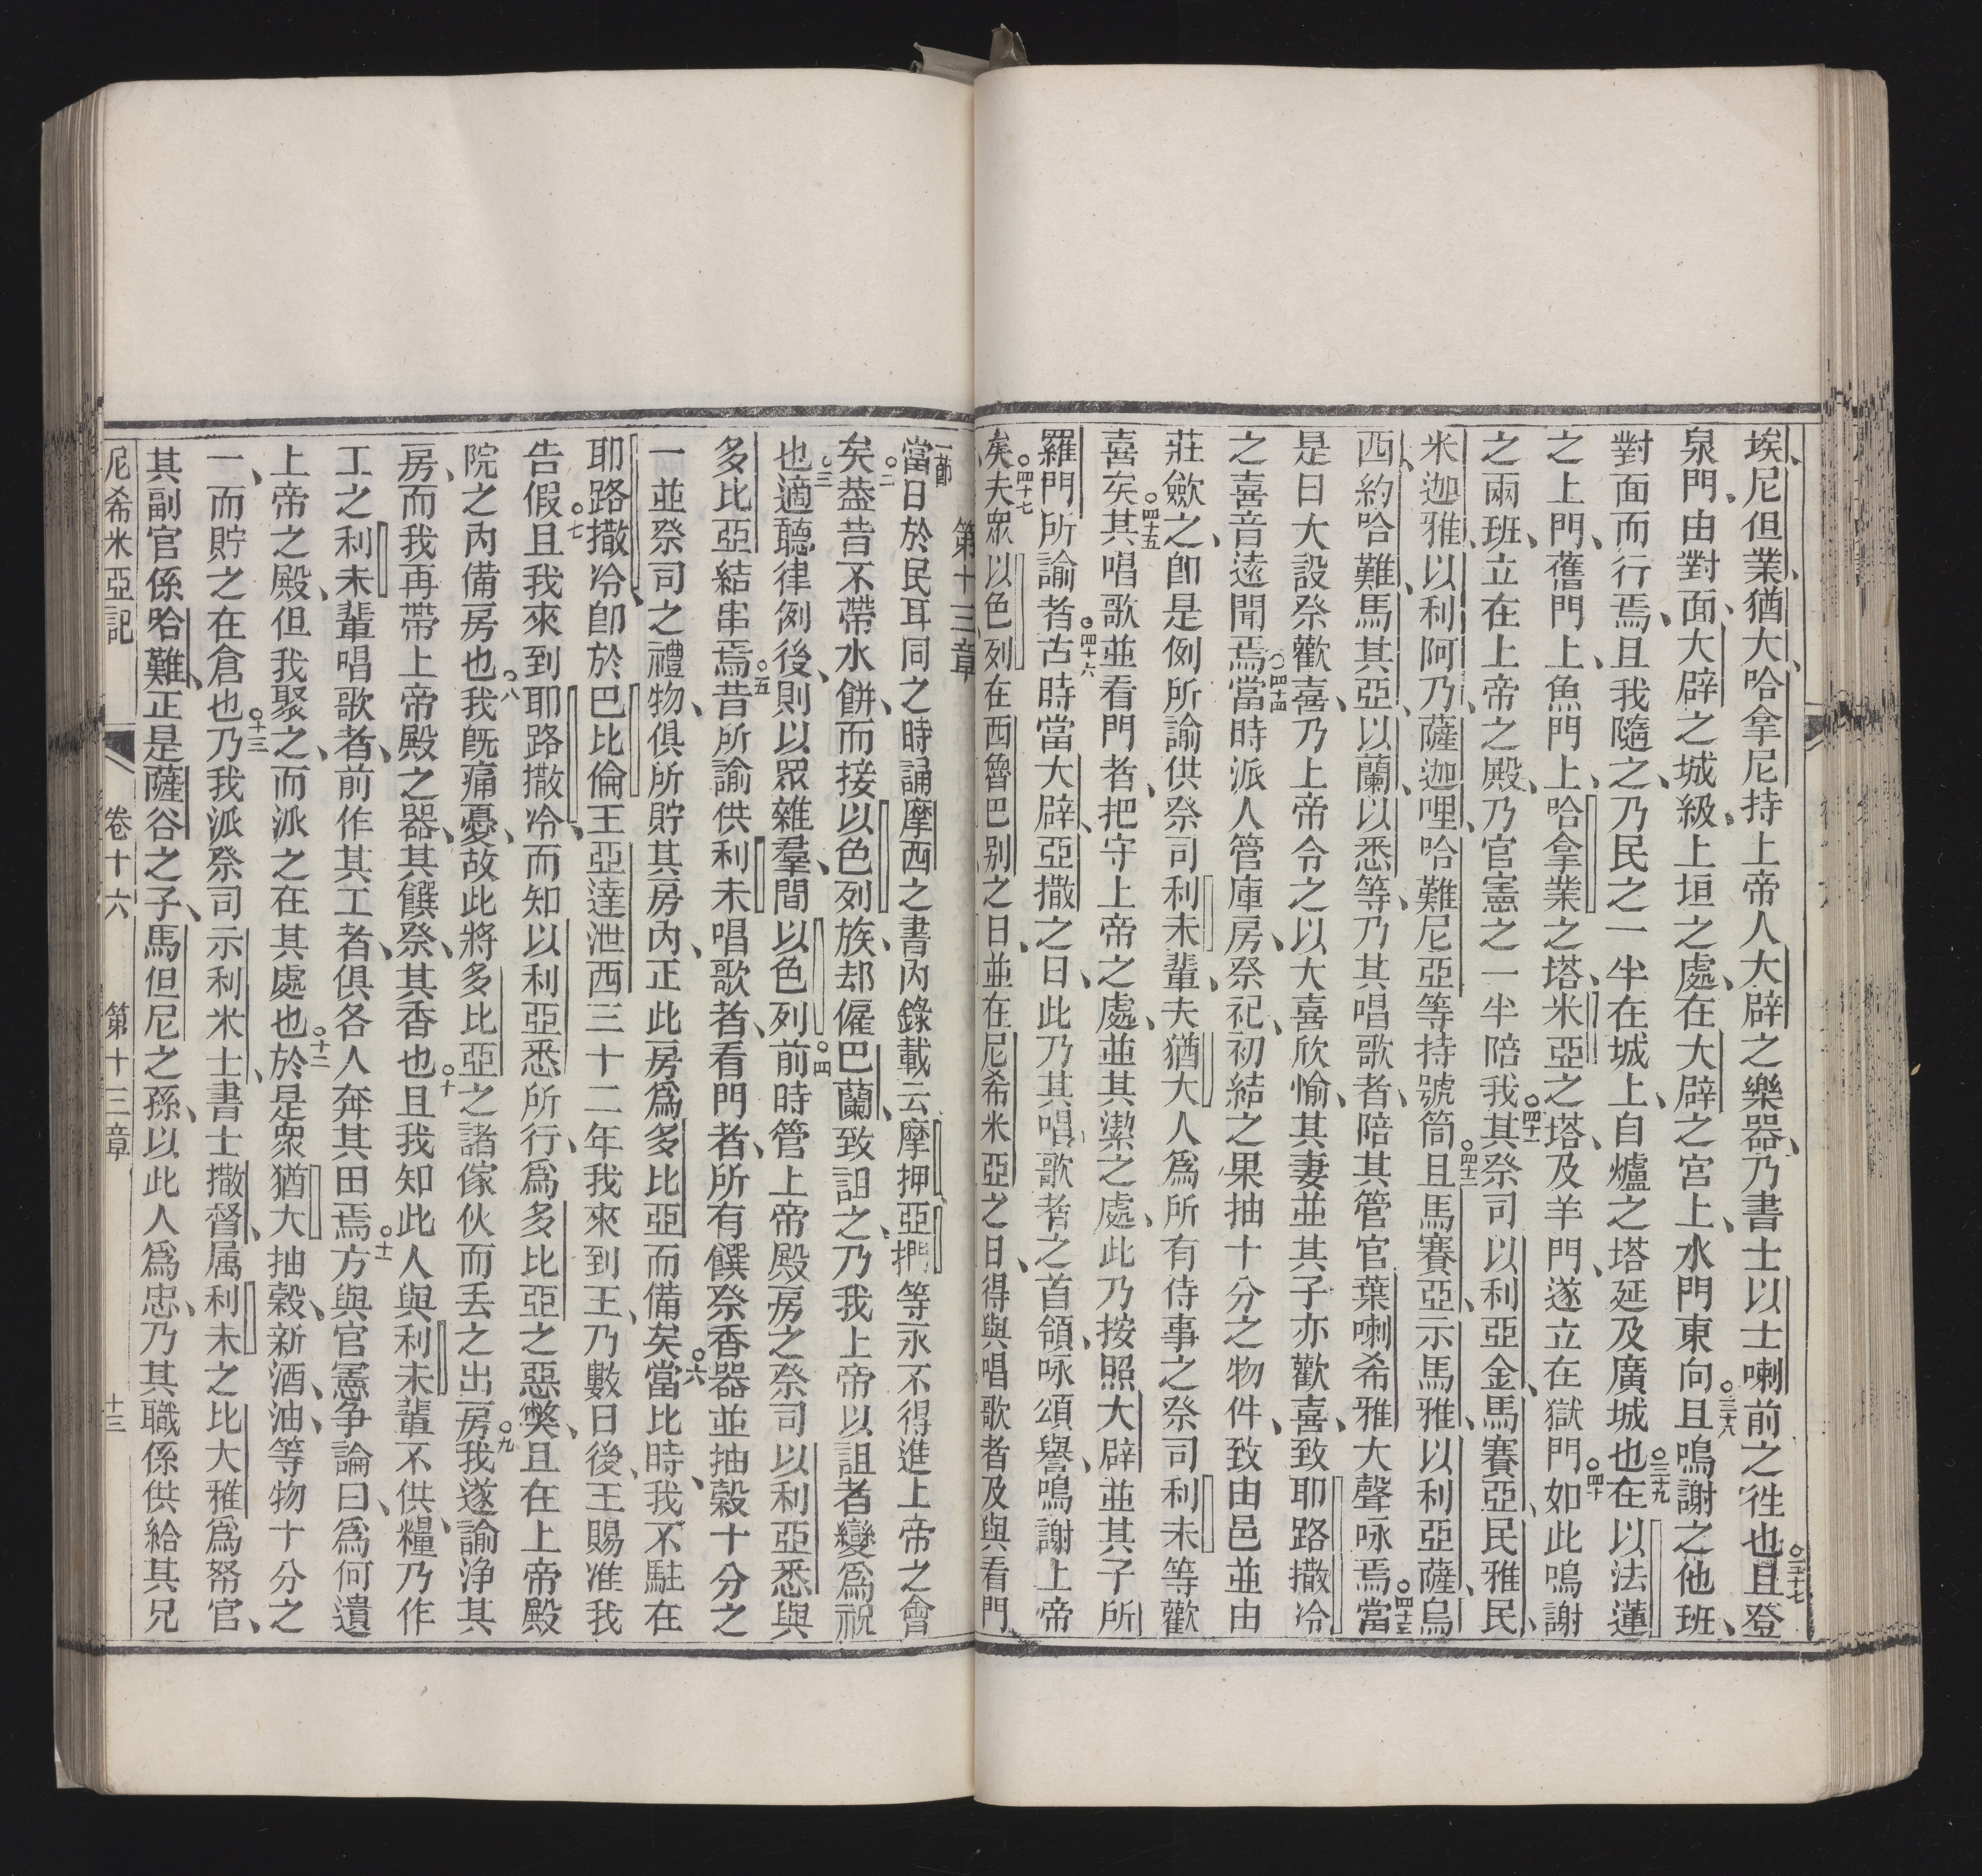 埃尼但業猶大哈拿尼持上帝人大辟之樂器乃書士以士喇前之徃也○三十七且登
泉門由對面大辟之城級上垣之處在大辟之宮上水門東向○三十八且鳴謝之他班
對面而行焉且我隨之乃民之一半在城上自爐之塔延及廣城也○三十九在以法蓮
之上門舊門上魚門上哈拿業之塔米亞之塔及羊門遂立在獄門○四十如此鳴謝
之兩班立在上帝之殿乃官憲之一半陪我○四十一其祭司以利亞金馬賽亞民雅民
米迦雅以利阿乃薩迦哩哈難尼亞等持號筒○四十二且馬賽亞示馬雅以利亞薩烏
西約哈難馬其亞以蘭以悉等乃其唱歌者陪其管官葉喇希雅大聲咏焉○四十三當
是日大設祭歡喜乃上帝令之以大喜欣愉其妻並其子亦歡喜致耶路撒冷
之喜音遠聞焉○四十四當時派人管庫房祭祀初結之果抽十分之物件致由邑並由
莊歛之卽是例所諭供祭司利未輩夫猶大人爲所有侍事之祭司利未等歡
喜矣○四十五其唱歌並看門者把守上帝之處並其潔之處此乃按照大辟並其子所
羅門所諭者○四十六古時當大辟亞撒之日此乃其唱歌者之首領咏頌譽鳴謝上帝
矣○四十七夫眾以色列在西魯巴別之日並在尼希米亞之日得與唱歌者及與看門
第十三章
一節當日於民耳同之時誦摩西之書內錄載云摩押亞捫等永不得進上帝之會
矣○二葢昔不帶水餅而接以色列族却僱巴蘭致詛之乃我上帝以詛者變爲祝
也○三適聽律例後則以眾雜羣間以色列○四前時管上帝殿房之祭司以利亞悉與
多比亞結串焉○五昔所諭供利未唱歌者看門者所有饌祭香器並抽穀十分之
一並祭司之禮物俱所貯其房內正此房爲多比亞而備矣○六當比時我不駐在
耶路撒冷卽於巴比倫王亞達泄西三十二年我來到王乃數日後王賜准我
告假○七且我來到耶路撒冷而知以利亞悉所行爲多比亞之惡獘且在上帝殿
院之內備房也○八我旣痛憂故此將多比亞之諸傢伙而丟之出房○九我遂諭浄其
房而我再帶上帝殿之器其饌祭其香也○十且我知此人與利未輩不供糧乃作
工之利未輩唱歌者前作其工者俱各人奔其田焉○十一方與官憲争論曰爲何遺
上帝之殿但我聚之而派之在其處也○十二於是眾猶大抽穀新酒油等物十分之
一而貯之在倉也○十三乃我派祭司示利米士書士撒督属利未之比大雅爲帑官
其副官係哈難正是薩谷之子馬但尼之孫以此人爲忠乃其職係供給其兄
尼希米亞記 卷十六 第十三章 十三